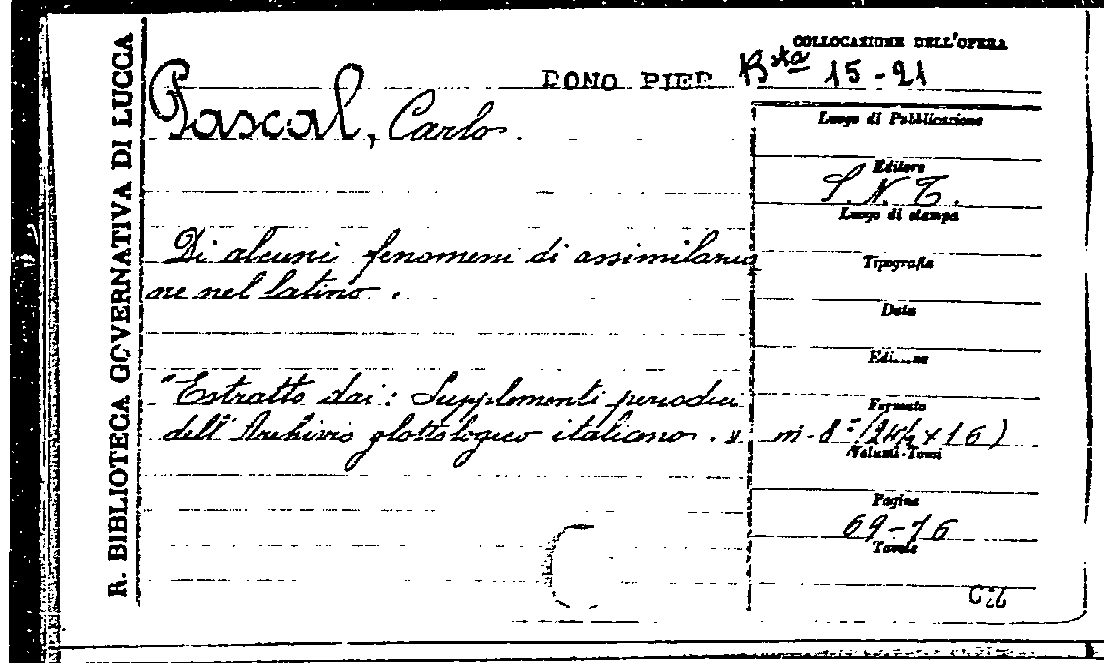 R. BIBLIOTECA GOVERNATIVA DI LUCCA
COLLOCAZIONE DELL'OPERA
DONO PIER Bsta 15-21
Pascal, Carlo.
Luogo di Pubblicazione
Editore
S. N. T.
Luogo di stampa
Di alcuni fenomeni di assimilazio
ne nel latino.
Tipografia
Data
Edizione
"Estratto dai: Supplementi periodici
Formato
dell'Archivio glottologico italiano. "
in-8° (24½ x 16)
Volumi-Tomi
Pagine
69-76
Tavole